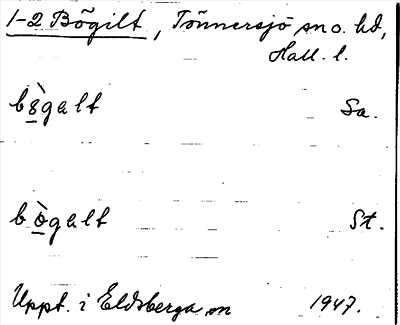 1-2 Bögilt, Tönnersjö sn o. hd,
Hall. l.
bs̀galt Sa.
bògalt St.
Uppt. i Eldsberga sn 1947.